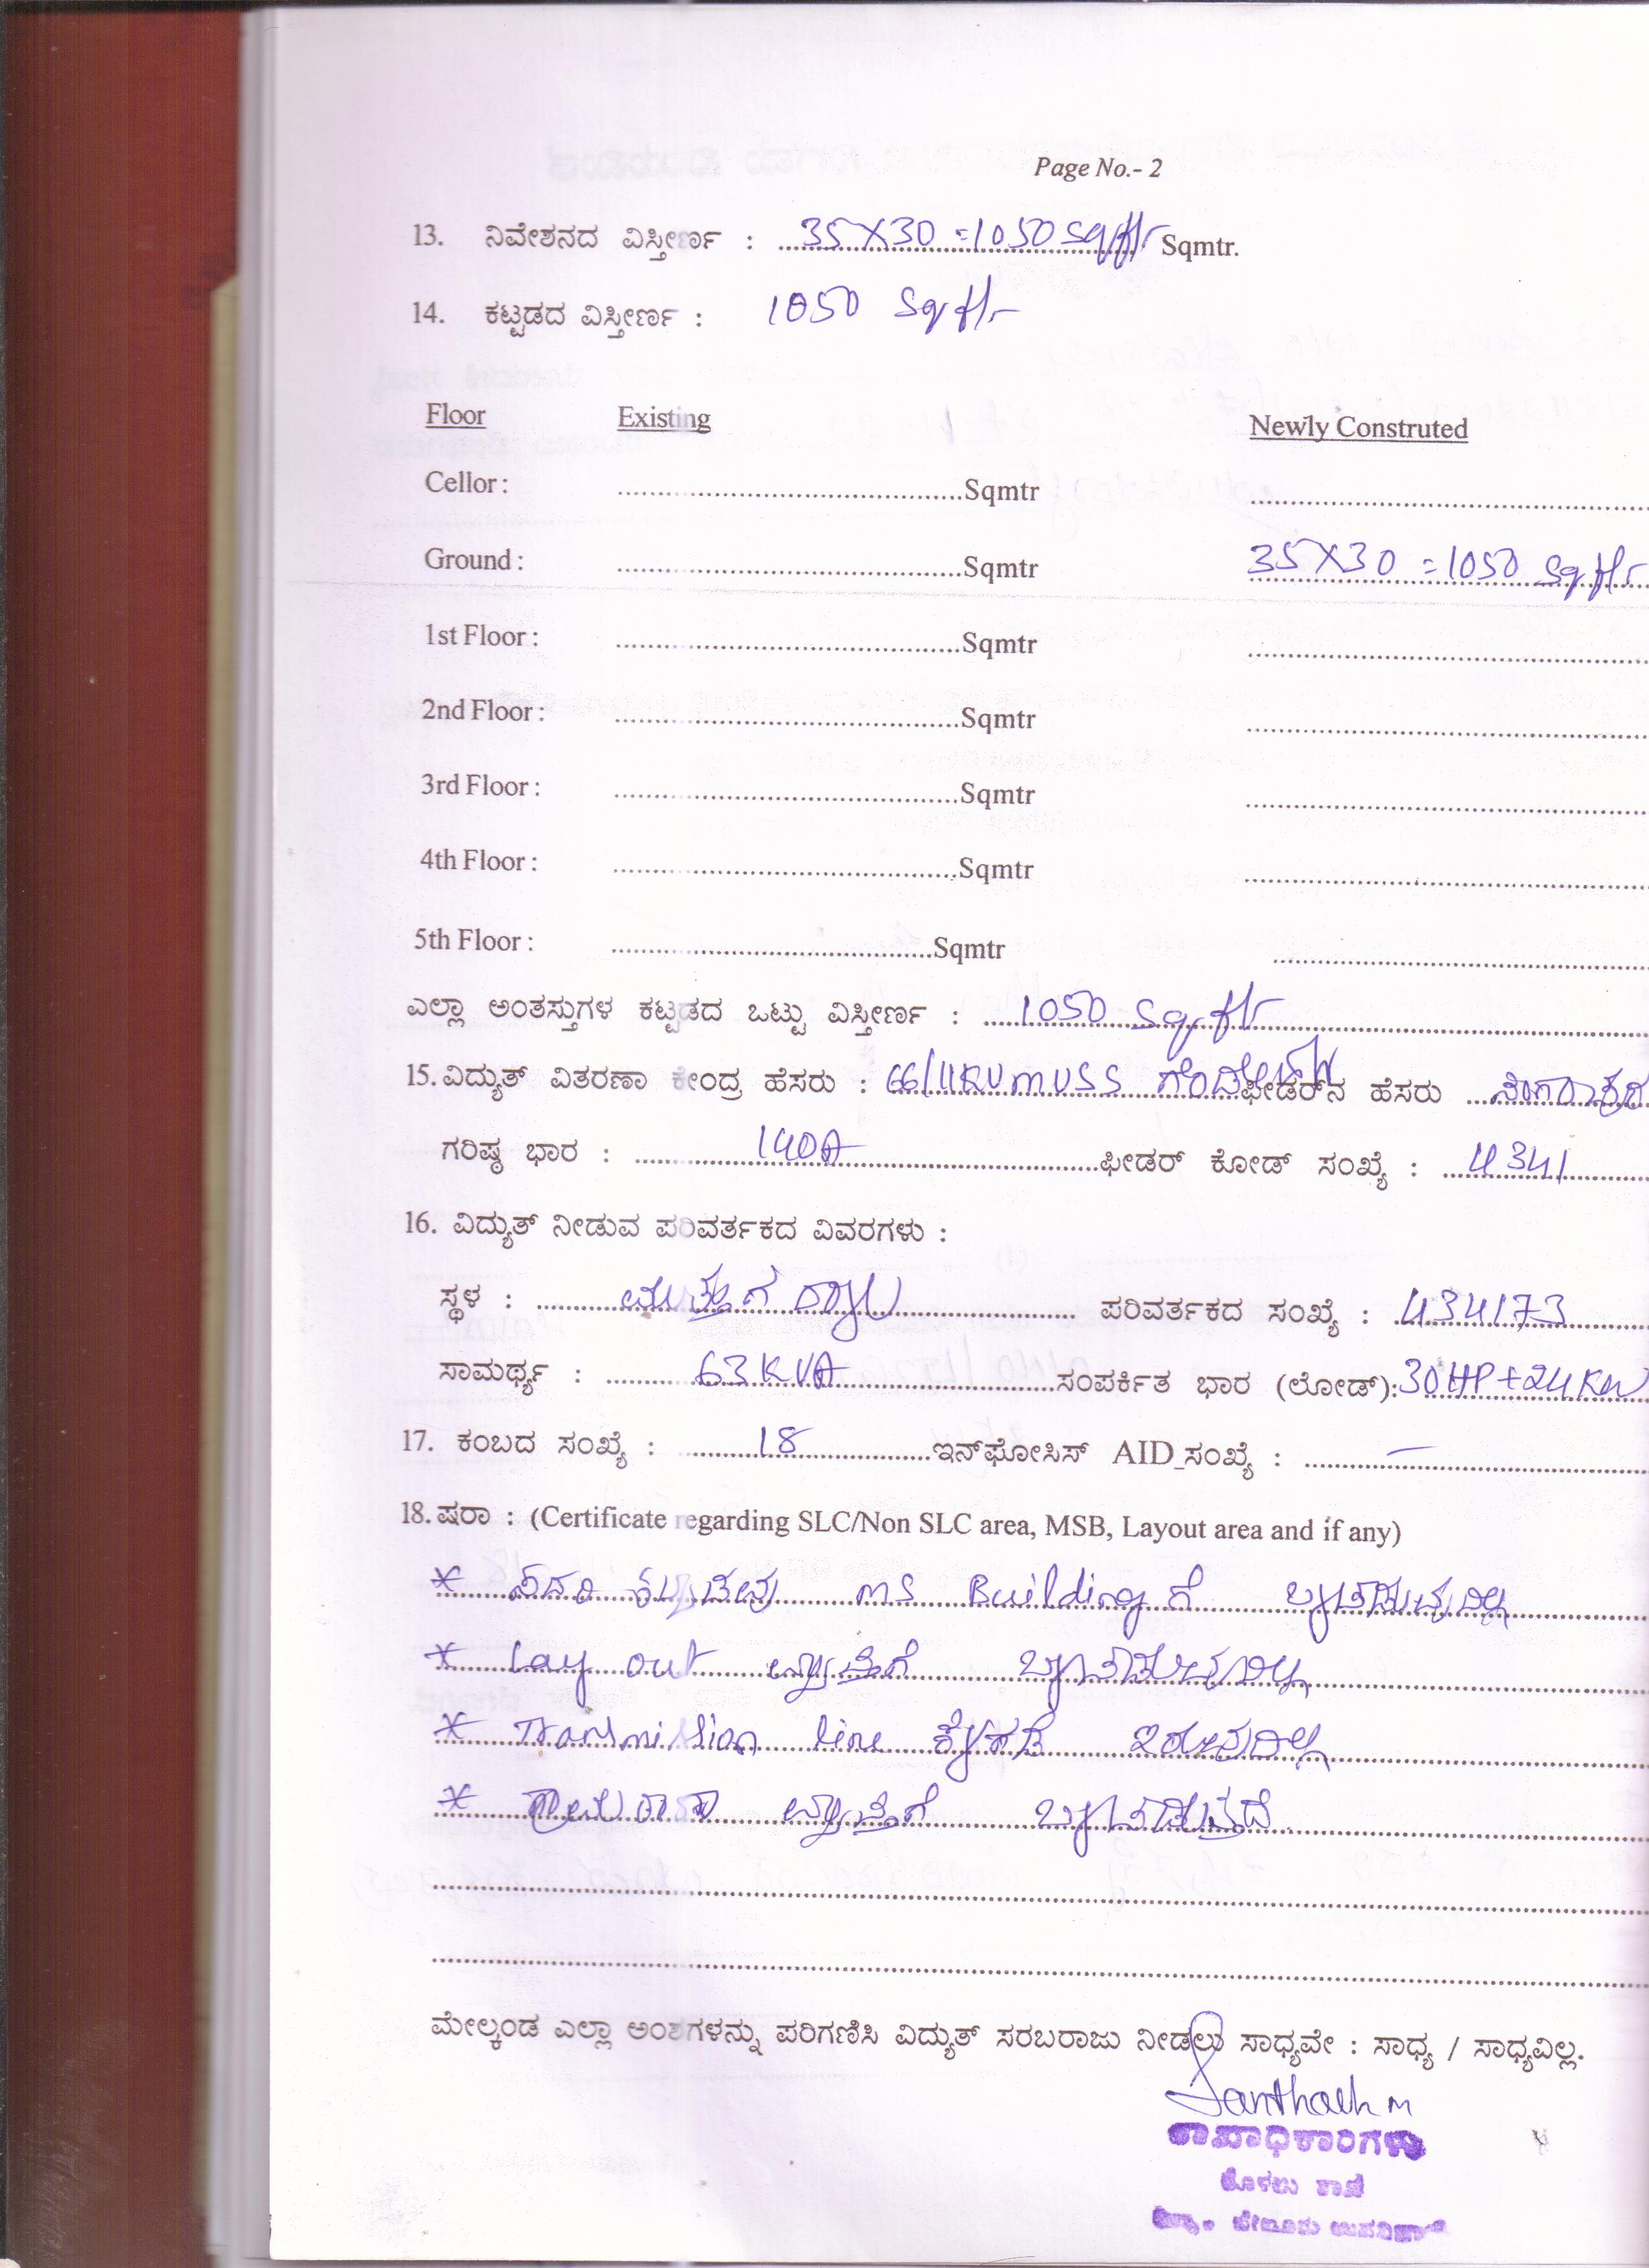 Page No.- 2
13. ನಿವೇಶನದ ವಿಸ್ತೀರ್ಣ : 35X30 =1050 sqftr Sqmtr.
14. ಕಟ್ಟಡದ ವಿಸ್ತೀರ್ಣ : 1050 sqftr
Floor Existing Newly Construted
Cellor : Sqmtr
Ground : Sqmtr 35X30 =1050 sqftr
1st Floor : Sqmtr
2nd Floor : Sqmtr
3rd Floor : Sqmtr
4th Floor : Sqmtr
5th Floor : Sqmtr
ಎಲ್ಲಾ ಅಂತಸ್ತುಗಳ ಕಟ್ಟಡದ ಒಟ್ಟು ವಿಸ್ತೀರ್ಣ : 1050 sqftr
15. ವಿದ್ಯುತ್ ವಿತರಣಾ ಕೇಂದ್ರ ಹೆಸರು : 66/11KV MUSS ಫೀಡರ್‌ನ ಹೆಸರು
ಗರಿಷ್ಠ ಭಾರ : 140A ಫೀಡರ್ ಕೋಡ್ ಸಂಖ್ಯೆ : 4341
16. ವಿದ್ಯುತ್ ನೀಡುವ ಪರಿವರ್ತಕದ ವಿವರಗಳು :
ಸ್ಥಳ : ಪರಿವರ್ತಕದ ಸಂಖ್ಯೆ : 434173
ಸಾಮರ್ಥ್ಯ : 63 KVA ಸಂಪರ್ಕಿತ ಭಾರ (ಲೋಡ್): 30HP+24KW
17. ಕಂಬದ ಸಂಖ್ಯೆ : 18 ಇನ್‌ಫೋಸಿಸ್ AID_ಸಂಖ್ಯೆ : —
18. ಷರಾ : (Certificate regarding SLC/Non SLC area, MSB, Layout area and if any)
* ಸದರಿ ಕಟ್ಟಡವು MS Building ಗೆ ಒಳಪಡುವುದಿಲ್ಲ
* Lay out ವ್ಯಾಪ್ತಿಗೆ ಒಳಪಡುವುದಿಲ್ಲ
* Transmission line ಕೆಳಗಡೆ ಇರುವುದಿಲ್ಲ
* ವ್ಯಾಪ್ತಿಗೆ ಒಳಪಡುತ್ತದೆ
ಮೇಲ್ಕಂಡ ಎಲ್ಲಾ ಅಂಶಗಳನ್ನು ಪರಿಗಣಿಸಿ ವಿದ್ಯುತ್ ಸರಬರಾಜು ನೀಡಲು ಸಾಧ್ಯವೇ : ಸಾಧ್ಯ / ಸಾಧ್ಯವಿಲ್ಲ.